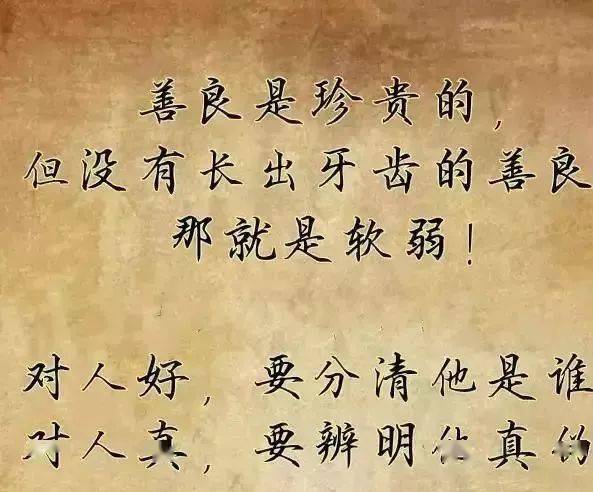 善良是珍贵的,
但没有长出牙齿的善良
那就是软弱!
对人好,要分清他是谁
对人真,要辨明 真伪